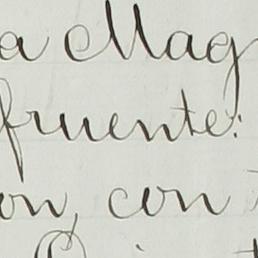 a Mag
fruente:
on con